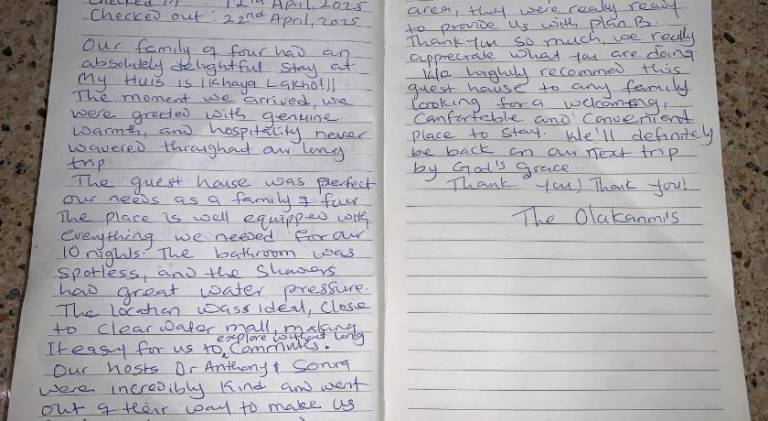 Checked in : 12th April, 2025
Checked out : 22nd April, 2025
Our family of four had an
absolutely delightful stay at
My Huis is (Khaya Lakho)!!
The moment we arrived, we
were greeted with genuine
warmth, and hospitality never
wavered throughout our long
trip.
The guest house was perfect
our needs as a family of four.
The place is well equipped with
everything we needed for our
10 nights. The bathroom was
spotless, and the showers
had great water pressure.
The location wass ideal, close
to clearwater mall, making
It easy for us to explore without long
commutes.
Our hosts Dr Anthony & Sonra
were incredibly kind and went
out of their way to make us
area, they were really ready
to provide us with plan B.
Thank you so much, we really
appreciate what you are doing
We highly recommed this
guest house to any family
looking for a welcoming,
Comfortable and Convenient
place to stay. We'll definitely
be back on our next trip
by God's grace.
Thank you! Thank you!
The Olakanmi's